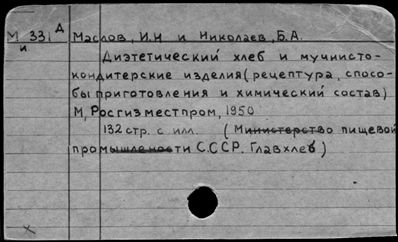 М 331 Д Маслов, И.Н и Николаев, Б.А.
и Диэтетический хлеб и мучнисто-
кондитерские изделия (рецептура, спосо-
бы приготовления и химический состав)
М, Росгизместпром, 1950
132 стр. с илл. (Министерство пищевой
промышлености С.С.С.Р. Главхлеб)